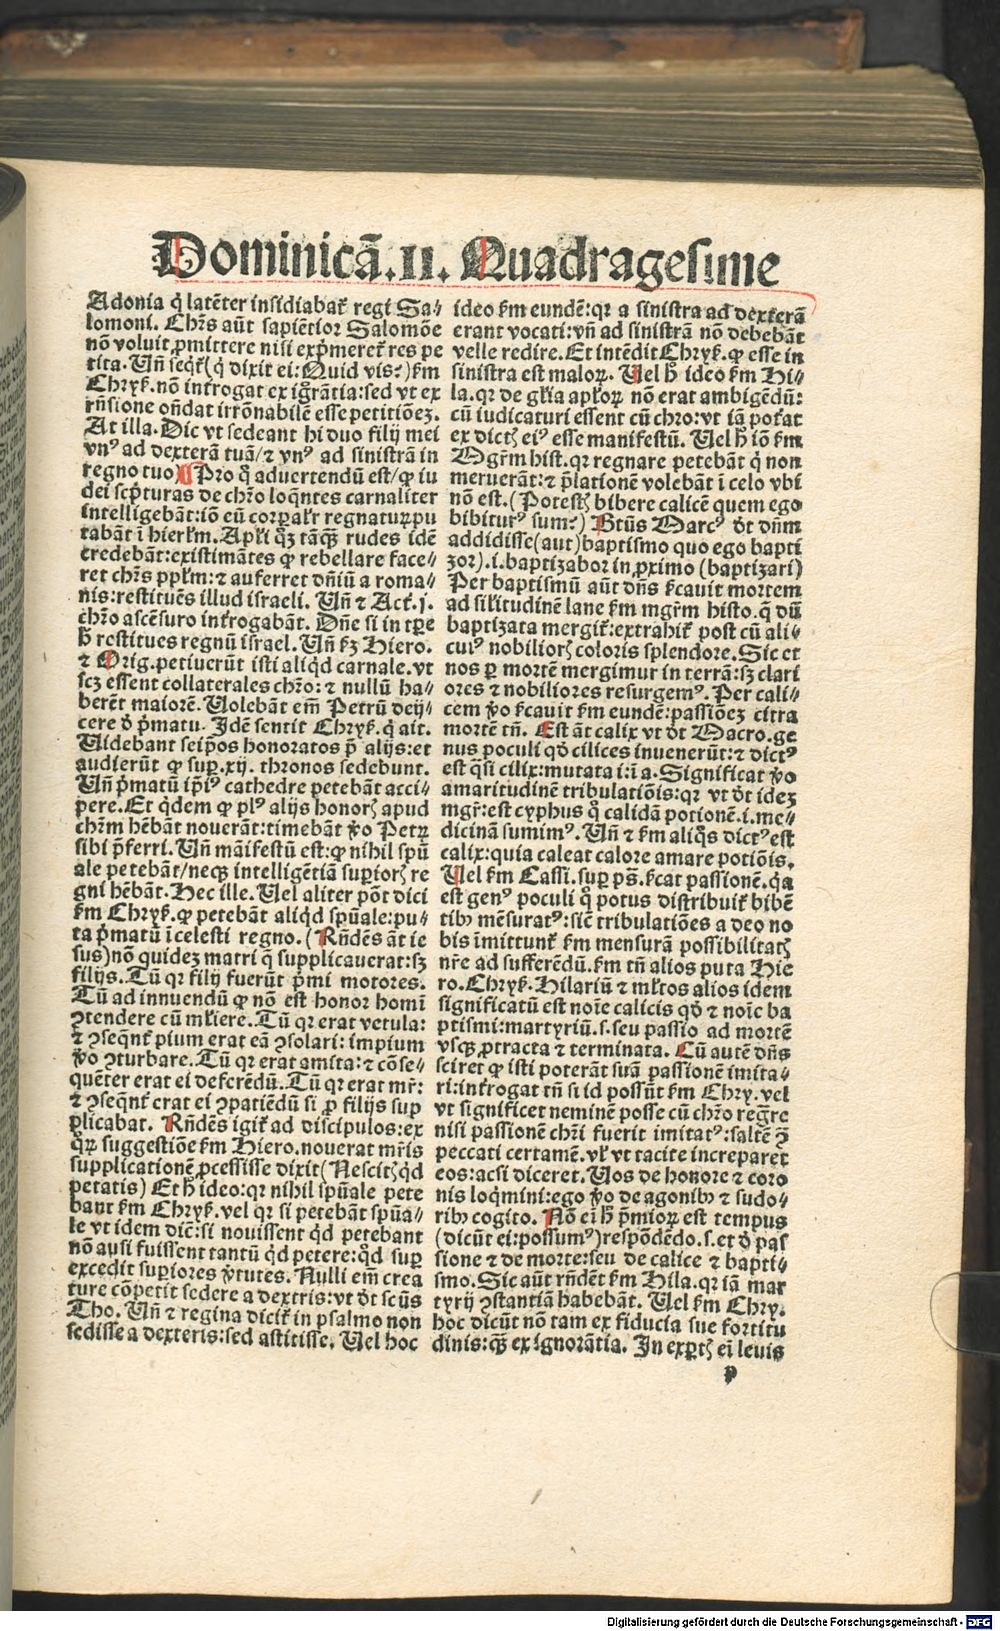 Dominicã.II. Quadragesime
Adonia q̇ latẽter insidiabat̃ regi Sa⸗
lomoni. Chr̃s aũt sapiẽtior Salomõe
nõ voluit ꝓmittere nisi exp̃meret̃ res pe
tita. Uñ seqt̃(q̇ dixit ei: Quid vis?)ẜm
Chryẜ. nõ int̃rogat ex igr̃ãtia: sed vt ex
rñsione oñdat irrõnabilẽ esse petitiõeꝫ.
At illa. Dic vt sedeant hi duo filij mei
vnꝰ ad dexterã tuã/ ⁊ vnꝰ ad sinistrã in
regno tuo) Pro q̊ advertendũ est/ ꝙ iu
dei scp̃turas de chr̃o loq̃ntes carnaliter
intelligebãt: iõ eũ corꝑalr̃ regnaturꝵpu
tabãt ĩ hierl̃m. Apl̃i q̊ꝫ tãqꝫ rudes idẽ
credebãt: existimãtes ꝙ rebellare face⸗
ret chr̃s ppl̃m: ⁊ auferret dñiũ a roma⸗
nis: restituẽs illud israeli. Uñ ⁊ Act̃.j.
chr̃o ascẽsuro int̃rogabãt. Dñe si in tꝑe
h̃ restitues regnũ israel. Uñ ẜꝫ Hiero.
⁊ Orig. petiuerũt isti aliq̇d carnale. vt
scꝫ essent collaterales chr̃o: ⁊ nullũ ha⸗
berẽt maiorẽ. Uolebãt em̃ Petrũ deij⸗
cere ď p̃matu. Idẽ sentit Chryẜ. q̇ ait.
Uidebant seip̃os honoratos p̃ alijs: et
audierũt ꝙ suꝑ.xij. thronos sedebunt.
Uñ p̃matũ ip̃iꝰ cathedre petebãt acci⸗
pere. Et q̇dem ꝙ plꝰ alijs honorꝭ apud
chr̃m hẽbãt nouerãt: timebãt ṽo Petꝝ
sibi p̃ferri. Uñ mãifestũ est: ꝙ nihil sp̃ũ
ale petebãt/ necꝫ intelligẽtiã suꝑiorꝭ re
gni hẽbãt. Hec ille. Uel aliter põt dici
ẜm Chryẜ. ꝙ petebãt aliq̇d sp̃ũale: pu⸗
ta p̃matũ ĩ celesti regno. (Rñdẽs ãt ie
sus) nõ quideꝫ matri q̃ supplicauerat: sꝫ
filijs. Tũ qꝛ filij fuerũt p̃mi motores.
Tũ ad innuendũ ꝙ nõ est honor homĩ
ꝯtendere cũ ml̃iere. Tũ qꝛ erat vetula:
⁊ ꝯseqñt̃ pium erat eã ꝯsolari: impium
ṽo ꝯturbare. Tũ qꝛ erat amita: ⁊ cõse⸗
quẽter erat ei deferẽdũ. Tũ qꝛ erat mr̃:
⁊ ꝯseqñt̃ erat ei ꝯpatiẽdũ si ꝓ filijs sup
plicabat. Rñdẽs igit̃ ad discipulos: ex
qꝝ suggestiõe ẜm Hiero. nouerat mr̃is
supplicationẽ ꝓcessisse dixit(Nescitꝭ q̇d
petatis) Et h̃ ideo: qꝛ nihil sp̃ũale pete
bant ẜm Chryẜ. vel qꝛ si petebãt sp̃ũa⸗
le vt idem dic̃: si nouissent q̇d petebant
nõ ausi fuissent tantũ q̇d petere: q̇d suꝑ
excedit suꝑiores ṽtutes. Nulli em̃ crea
ture cõpetit sedere a dextris: vt ďt scũs
Tho. Uñ ⁊ regina dicit̃ in psalmo non
sedisse a dexteris: sed astitisse. Uel hoc
ideo ẜm eundẽ: qꝛ a sinistra ad dext̃erã
erant vocati: vñ ad sinistrã nõ debebãt
velle redire. Et intẽdit Chryẜ. ꝙ esse in
sinistra est maloꝝ. Uel h̃ ideo ẜm Hi⸗
la. qꝛ de gl̃ia apl̃oꝝ nõ erat ambigẽdũ:
cũ iudicaturi essent cũ chr̃o: vt iã pot̃at
ex dictꝭ eiꝰ esse manifestũ. Uel h̃ iõ ẜm
Mgr̃m hist. qꝛ regnare petebãt q̇ non
meruerãt: ⁊ p̃lationẽ volebãt ĩ celo vbi
nõ est. (Potestꝭ bibere calicẽ quem ego
bibiturꝰ sum?) Btũs Marcꝰ ďt dñm
addidisse(aut) baptismo quo ego bapti
zor).i. baptizabor in ꝓximo (baptizari)
Per baptismũ aũt dñs ẜcavit mortem
ad sil̃itudinẽ lane ẜm mgr̃m histo. q̃ dũ
baptizata mergit̃: extrahit̃ post cũ ali⸗
cuiꝰ nobiliorꝭ coloris splendore. Sic et
nos ꝑ mortẽ mergimur in terrã: sꝫ clari
ores ⁊ nobiliores resurgemꝰ. Per cali⸗
cem ṽo ẜcauit ẜm eundẽ: passiõeꝫ citra
mortẽ tñ. Est ãt calix vt ďt Macro. ge
nus poculi qď cilices inuenerũt: ⁊ dictꝰ
est q̃si cilix: mutata i: ĩ a. Significat ṽo
amaritudinẽ tribulatiõis: qꝛ vt ďt ideꝫ
mgr̃: est cyphus q̊ calidã potionẽ.i. me⸗
dicinã sumimꝰ. Uñ ⁊ ẜm aliq̊s dictꝰ est
calix: quia caleat calore amare potiõis.
Uel ẜm Cassi. suꝑ ps̃. ẜcat passionẽ. q̇a
est genꝰ poculi q̊ potus distribuit̃ bibẽ
tibꝰ mẽsuratꝰ: sic̃ tribulatiões a deo no
bis ĩmittunt̃ ẜm mensurã possibilitatꝭ
nr̃e ad sufferẽdũ. ẜm tñ alios puta Hie
ro. Chryẜ. Hilariũ ⁊ ml̃tos alios idem
significatũ est noĩe calicis qď ⁊ noĩe ba
ptismi: martyriũ.s. seu passio ad mortẽ
vsqꝫ ꝓtracta ⁊ terminata. Cũ autẽ dñs
sciret ꝙ isti poterãt suã passionẽ imita⸗
ri: int̃rogat tñ si id possũt ẜm Chry. vel
vt significet neminẽ posse cũ chr̃o regr̃e
nisi passionẽ chr̃i fuerit imitatꝰ: saltẽ ꝯ̃
peccati certamẽ. vl̃ vt tacite increparet
eos: acsi diceret. Uos de honore ⁊ coro
nis loq̇mini: ego ṽo de agonibꝰ ⁊ sudo⸗
ribꝰ cogito. Nõ em̃ h̃ p̃mioꝝ est tempus
(dicũt ei: possumꝰ) respõdẽdo.s. et ď pas
sione ⁊ de morte: seu de calice ⁊ bapti⸗
smo. Sic aũt rñdẽt ẜm Hila. qꝛ iã mar
tyrij ꝯstantiã habebãt. Uel ẜm Chry.
hoc dicũt nõ tam ex fiducia sue fortitu
dinis: qꝫ ex ignorãtia. In exꝑtꝭ em̃ leuis
p
Digitalisierung gefördert durch die Deutsche Forschungsgemeinschaft - DFG